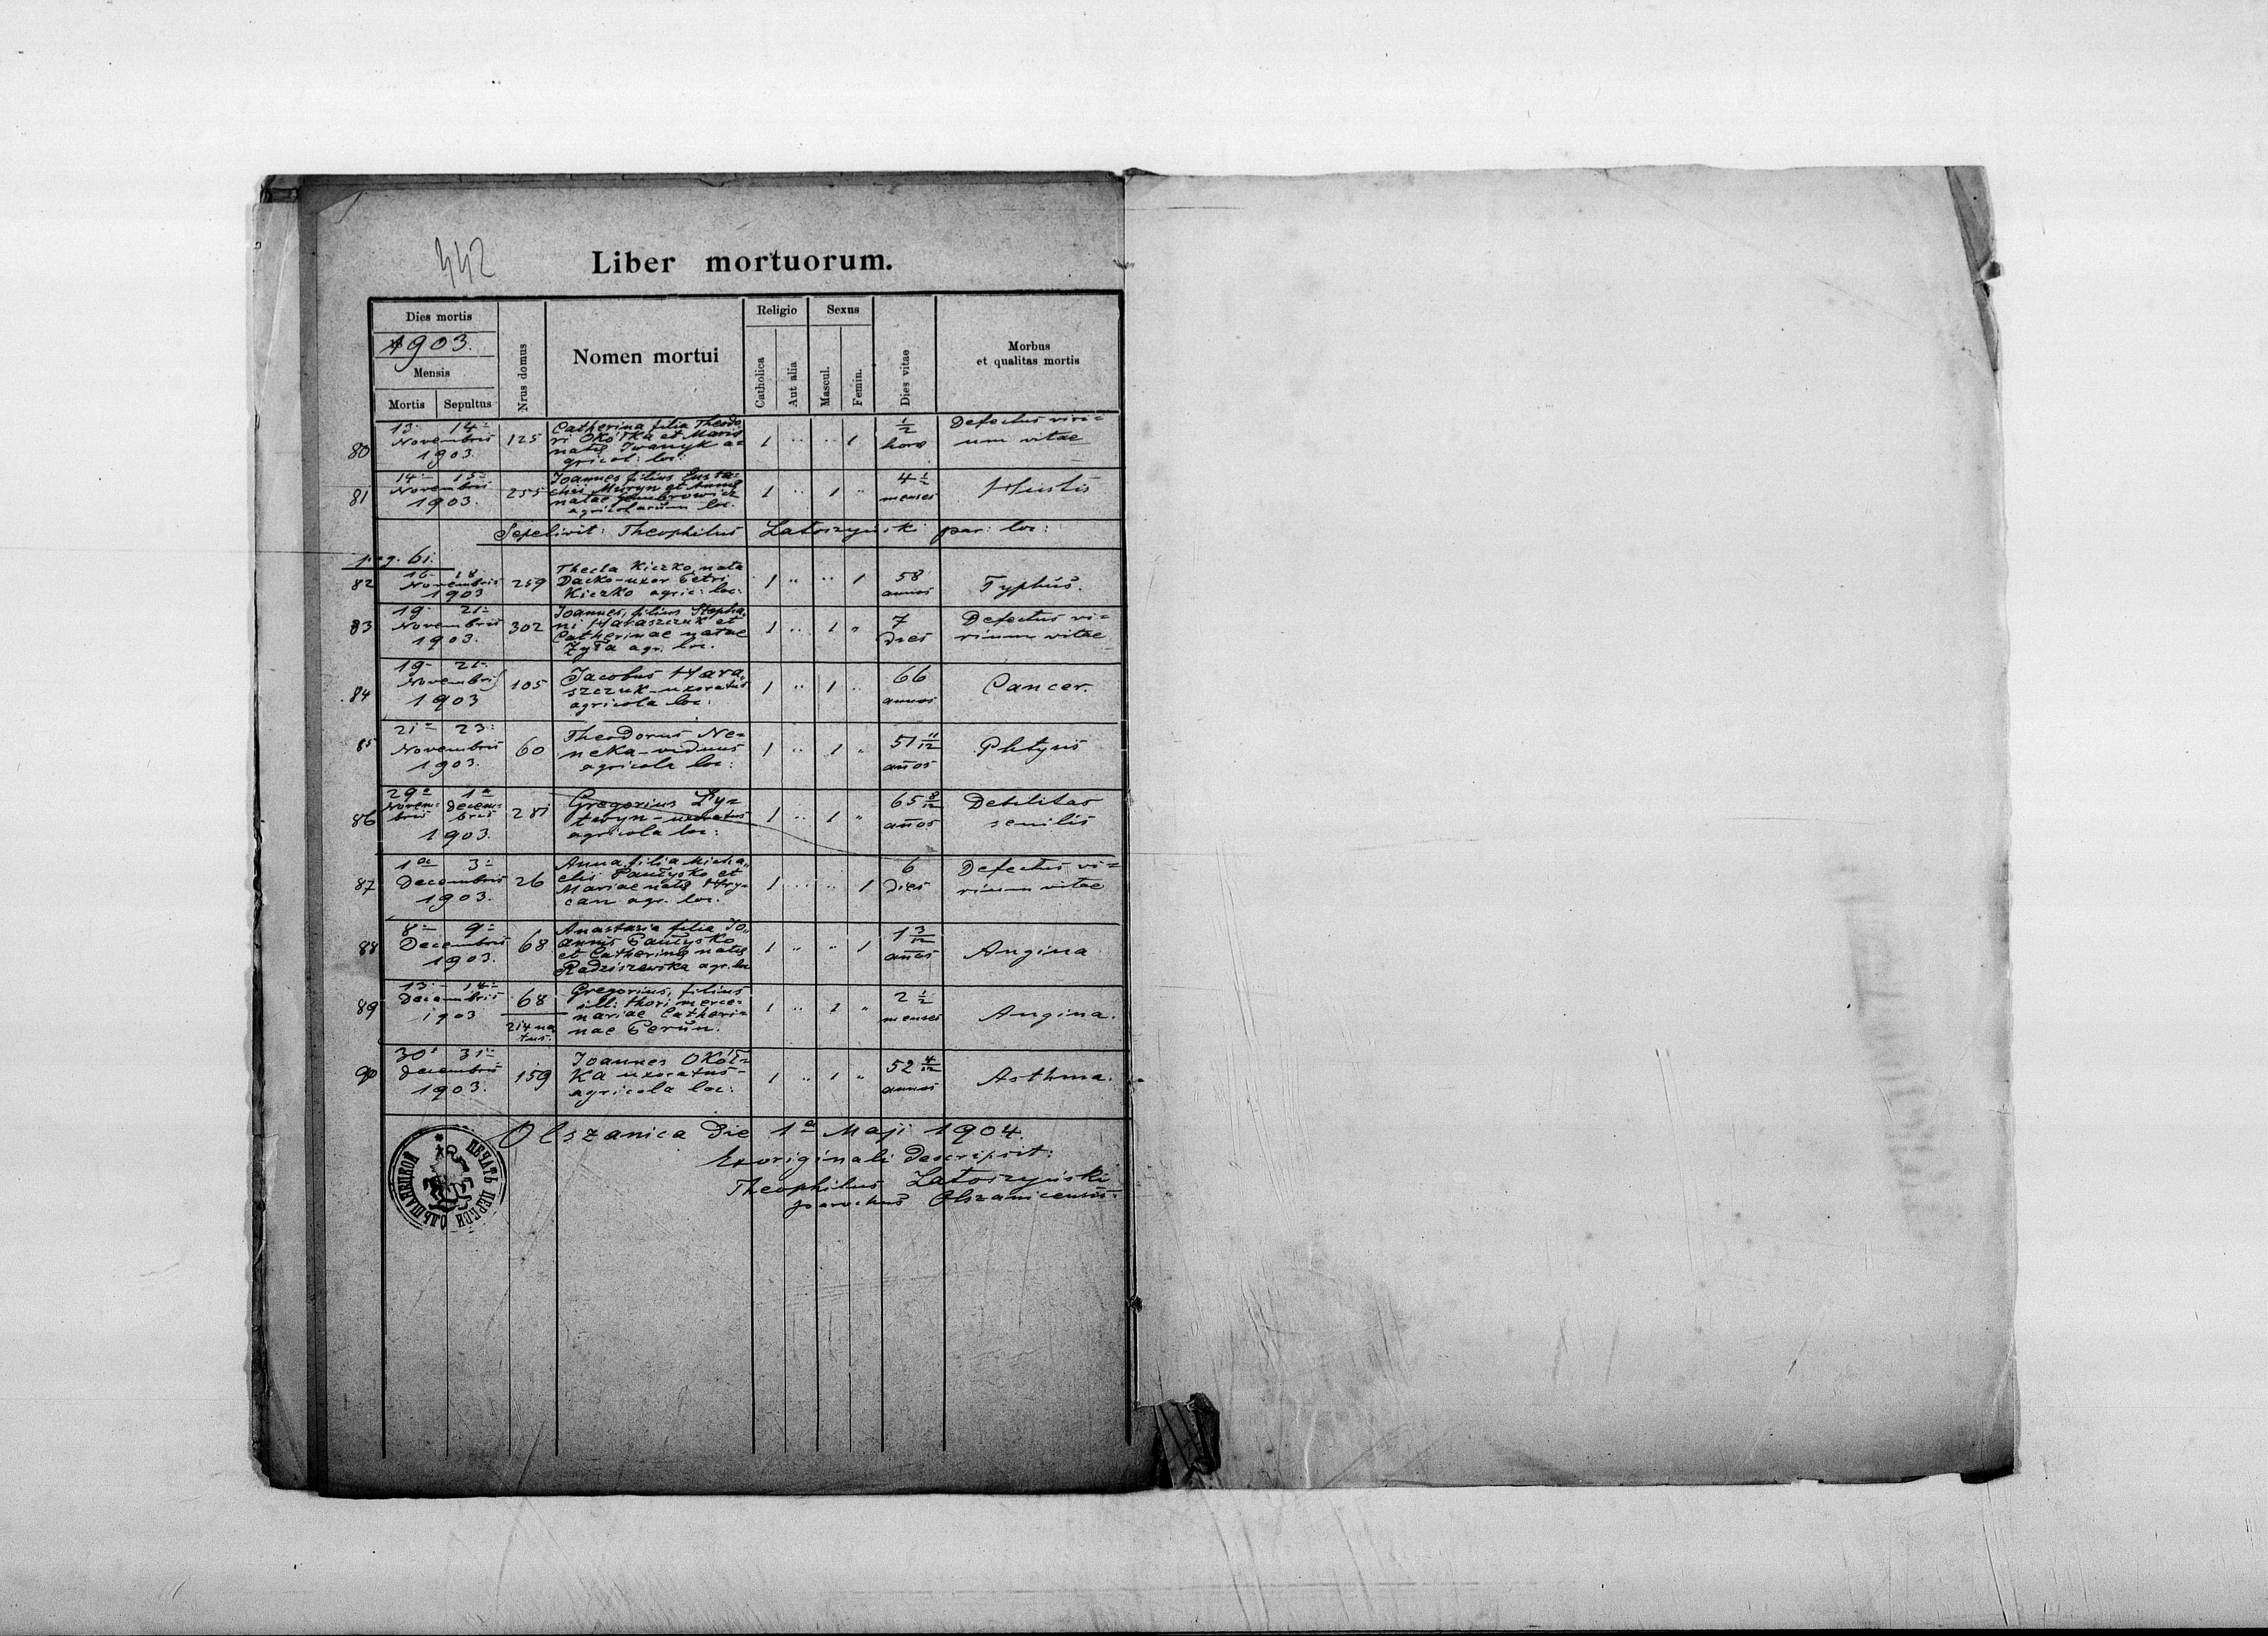 442
Liber mortuorum.
Dies mortis
1903.
Mensis
Mortis Sepultus
Nrus domus
Nomen mortui
Religio
Catholica
Aut alia
Sexus
Mascul.
Femin.
Dies vitae
Morbus
et qualitas mortis
80
13. 14.
Novembris
1903.
125
Catherina filia Theodo
ri Okółka et Mariæ
natæ Iwanyk a=
gricol: loc:
1 .. .. 1
1/2
hora
Defectus viri=
um vitae
81
14. 15.
Novembris
1903.
255
Joannes filius Eusta=
chii Muryn et Annæ
natae
agricolarum loc.
1 .. 1 ..
4 1/2
menses
Hustis
Sepelivit: Theophilus Latoszyński par: loc:
pag. 61.
82
16. 18.
Novembris
1903
259
Thecla Kiczko nata
Dacko-uxor Petri
Kiczko agric: loc:
1 .. .. 1
58
annos
Typhus.
83
19. 21.
Novembris
1903.
302
Joannes, filius Stepha,,
ni Haraszczuk et
Catherinae natae
Zyła agr. loc.
1 .. 1 ..
7
dies
Defectus vi=
rium vitae
84
19. 21.
Novembris
1903
105
Jacobus Hara,,
szczuk-uxoratus
agricola loc:
1 .. 1 ..
66
annos
Cancer.
85
21. 23.
Novembris
1903.
60
Theodorus Ne=
neka-viduus
agricola loc:
1 .. 1 ..
51 11/12
años
Phtysis
86
29a 1a
Novem= Decem=
bris bris
1903.
281
Gregorius Ły=
twyn-uxoratus
agricola loc:
1 .. 1 ..
65 8/12
años
Debilitas
senilis
87
1a 3.
Decembris
1903.
26
Anna filia Micha,,
elis Pańysko et
Mariae natæ Hry=
can agr. loc.
1 .. .. 1
6
dies
Defectus vi=
rium vitae
88
8. 9.
Decembris
1903.
68
Anastasia filia Jo,,
annis Pańysko
et Catherinæ natæ
Radziszewska agr. loc
1 .. .. 1
1 3/12
años
Angina
89
13. 14.
Decembris
1903
68
214 na
tus.
Gregorius, filius
illi: thori merce=
nariae Catheri=
nae Perun.
1 .. 1 ..
2 1/2
menses
Angina.
90
30. 31.
Decembris
1903.
159
Joannes Okół=
ka uxoratus-
agricola loc:
1 .. 1 ..
52 4/12
annos
Asthma.
Olszanica die 1a Maji 1904.
Ex originali descripsit:
Theophilus Latoszyński
parochus Olszanicensis.
ПЕЧАТЬ ЦЕРКВИ ОЛЬШАНЕЦКОЙ